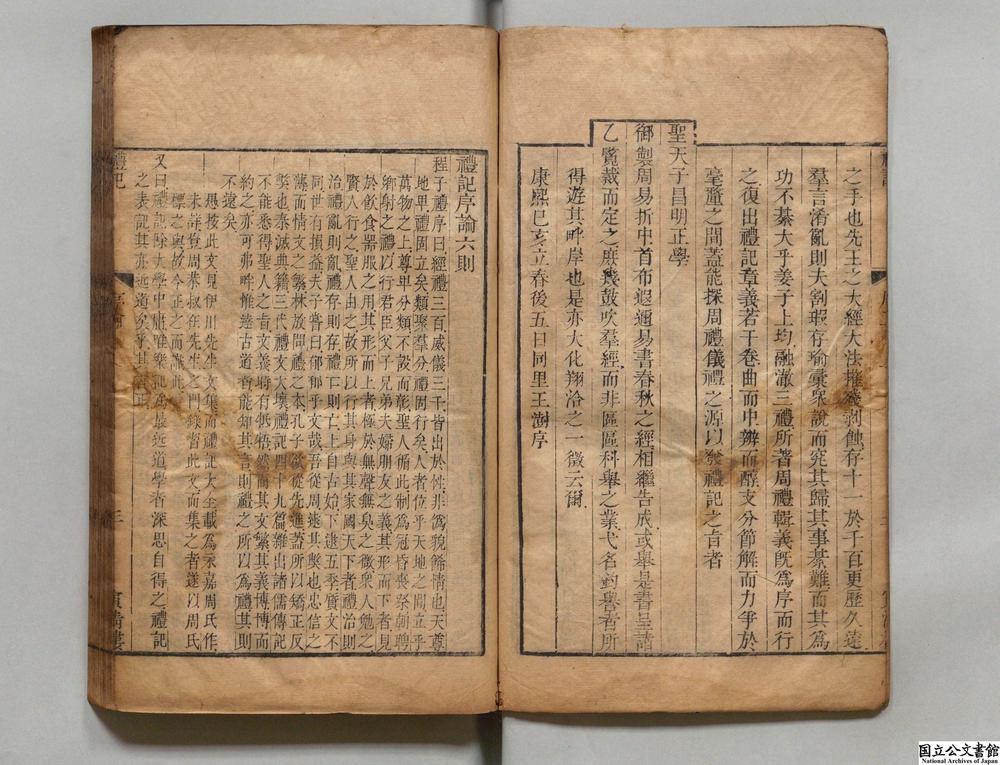 之手也先王之大經大法摧殘剥蝕存十一於千百更歷久遠
羣言淆亂則夫劄瑕存瑜彙衆說而究其歸其事綦難而其為
功不綦大乎姜子上均融澈三禮所著周禮輯義既為序而行
之復出禮記章義若干卷曲而中辨而醇支分節解而力爭於
毫釐之間蓋能探周禮儀禮之源以發禮記之旨者
聖天子昌明正學
御製周易折中首布遐邇易書春秋之經相繼告成或舉是書呈請
乙覽裁而定之庶幾鼓吹羣經而非區區科舉之業弋名釣譽者所
得遊其畔岸也是亦大化翔洽之一徵云爾
康熙己亥立春後五日同里王澍序
禮記序論六則
程子禮序曰經禮三百威儀三千皆出於性非為貌飾情也天尊
地卑禮固立矣類聚羣分禮固行矣人者位乎天地之間立乎
萬物之上尊卑分類不設而彰聖人循此制為冠昏喪祭朝聘
鄉射之禮以行君臣父子兄弟夫婦朋友之義其形而下者見
於飲食器服之用其形而上者極於無聲無臭之微衆人勉之
賢人行之聖人由之故所以行其身與其家國天下者禮治則
治禮亂則亂禮存則存禮亡則亡上自古始下逮五季質文不
同世有損益夫子嘗曰郁郁乎文哉吾從周逮其獘也忠信之
薄而情文之繁林放問禮之本孔子欲從先進蓋所以矯正反
獘也秦滅典籍三代禮文大壞禮記四十九篇雜出諸儒傳記
不能悉得聖人之旨文義時有牴牾然而其文繁其義博博而
約之亦可弗畔惟達古道者能知其言則禮之所以為禮其則
不遠矣
愚按此文見伊川先生文集而禮記大全載為永嘉周氏作
未詳豈周恭叔在先生之門錄昔此文而集之者遂以周氏
標之與故今正之而識此
又曰禮記除大學中庸唯樂記為最近道學者深思自得之禮記
之表記其亦近道矣乎其言正
禮記
三
寶